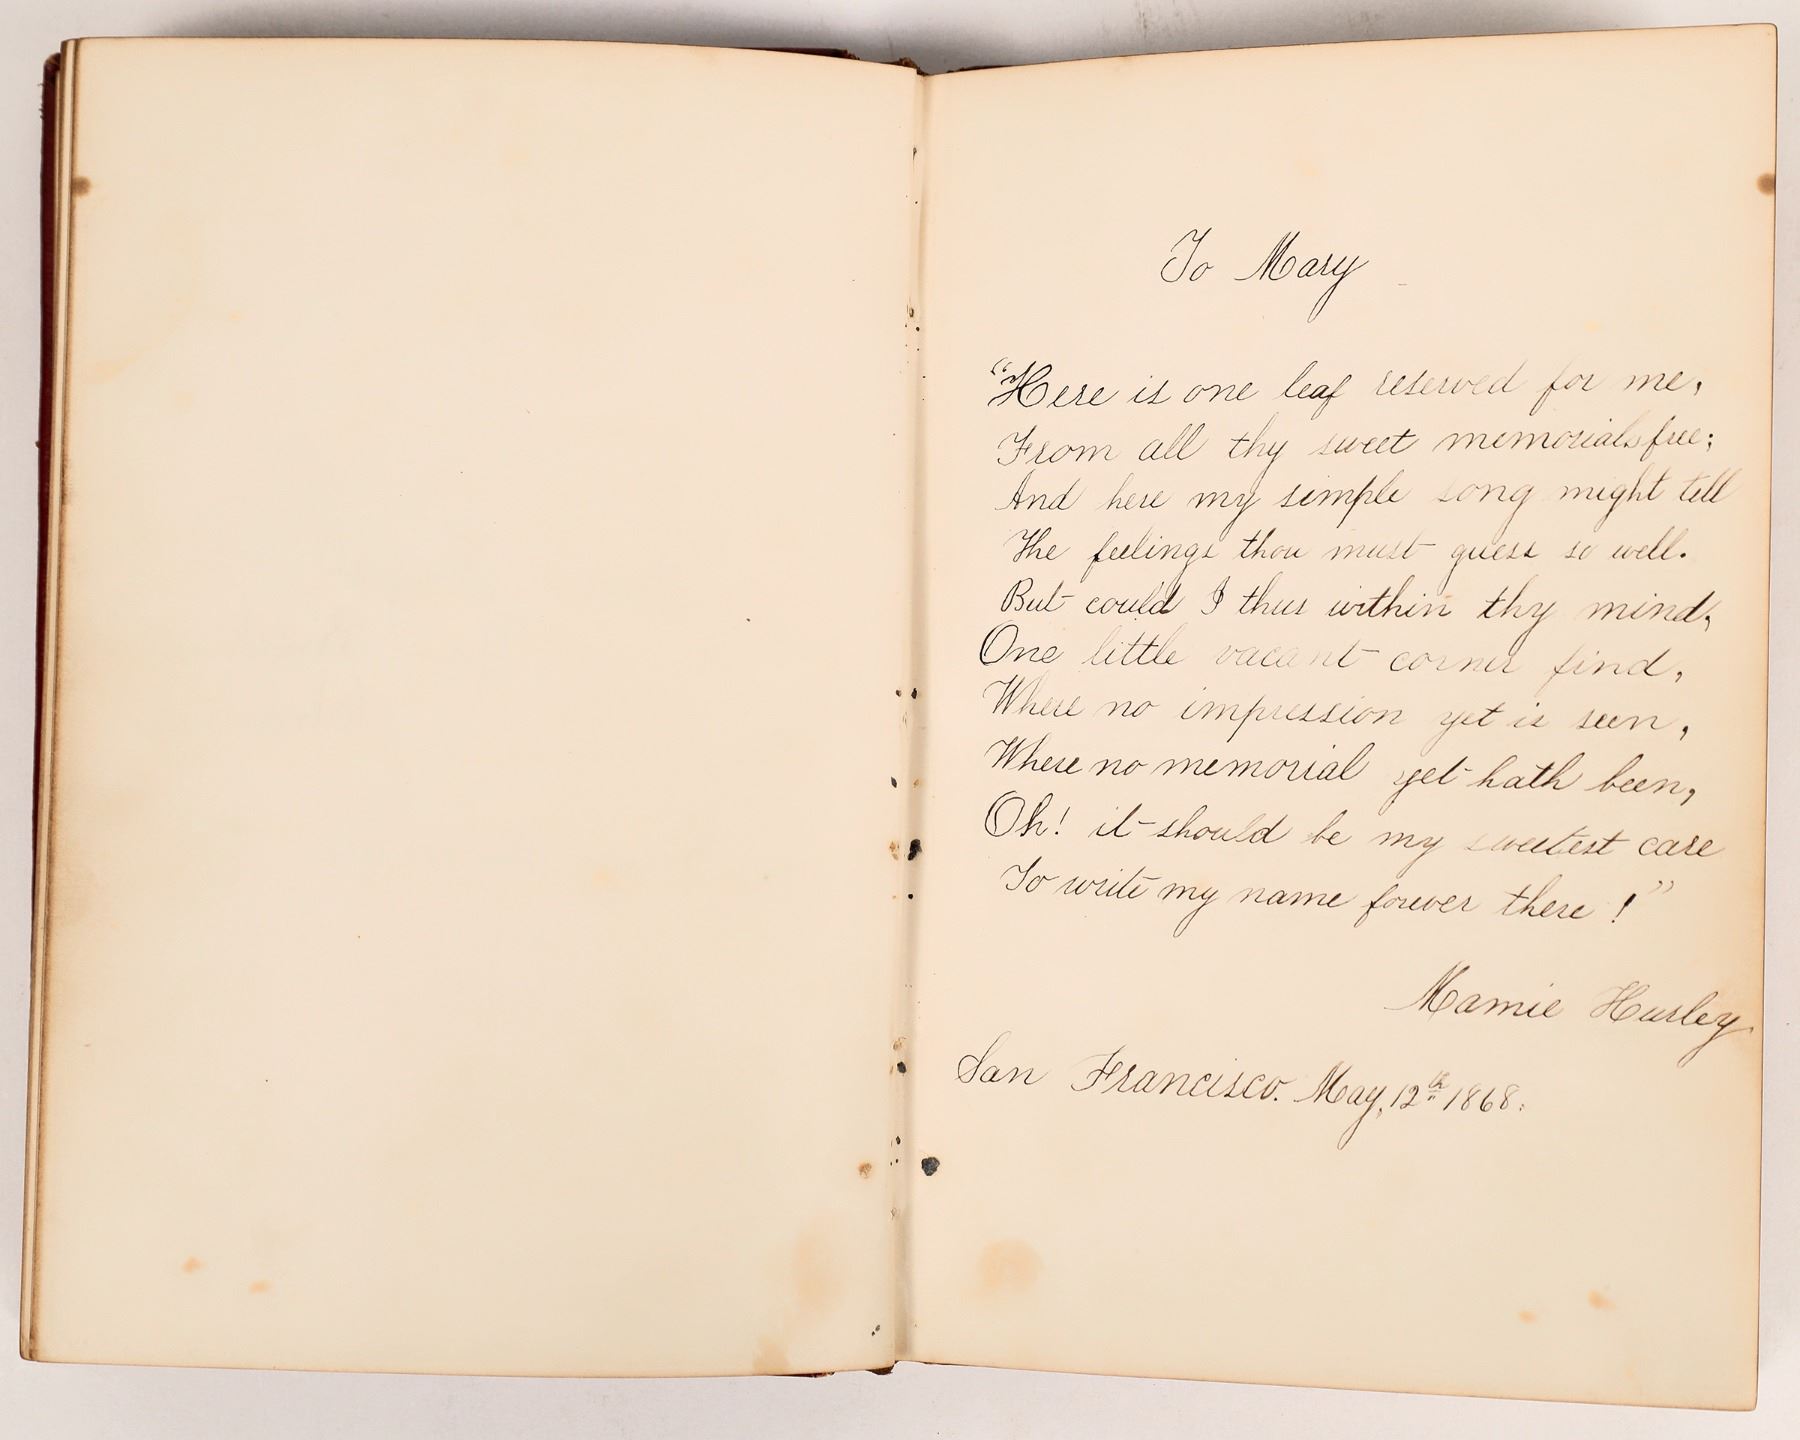 To Mary
"Here is one leaf reserved for me,
From all thy sweet memorials free;
And here my simple song might tell
The feelings thou must guess so well.
But could I thus within thy mind,
One little vacant corner find,
Where no impression yet is seen,
Where no memorial yet hath been,
Oh! it should be my sweetest care
To write my name forever there!"
Mamie Hurley
San Francisco. May, 12th 1868.